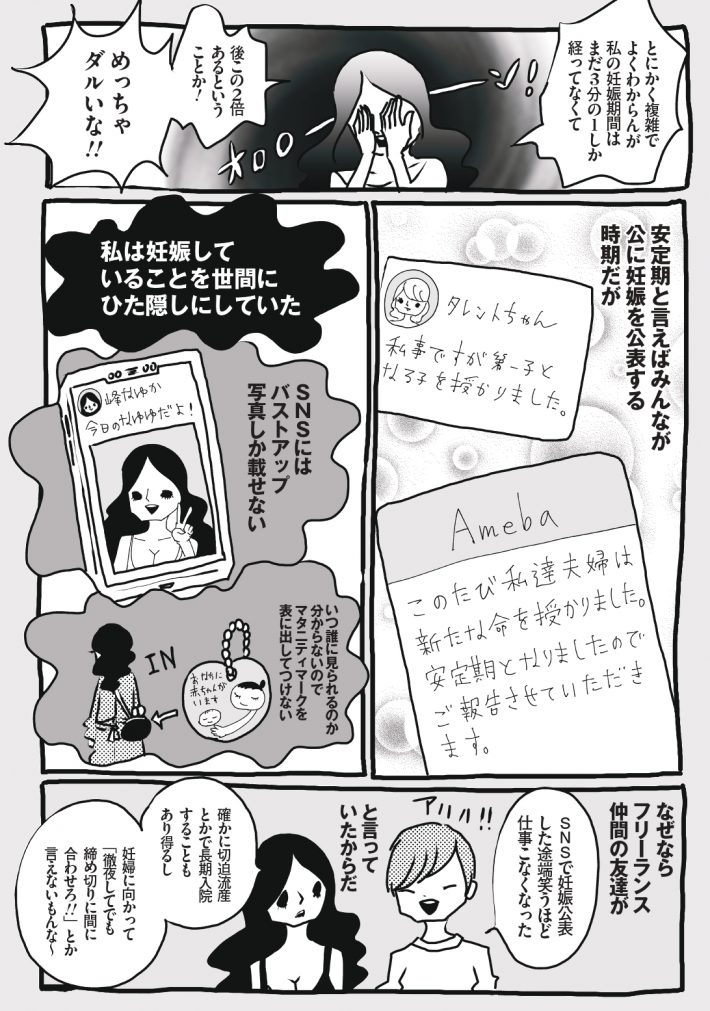 とにかく複雑で
よくわからんが
私の妊娠期間は
まだ3分の1しか
経ってなくて
後この2倍
あるという
ことか!
めっちゃ
ダルいな!!
安定期と言えばみんなが
公に妊娠を公表する
時期だが
タレントちゃん
私事ですが第一子と
なる子を授かりました。
Ameba
このたび私達夫婦は
新たな命を授かりました。
安定期となりましたので
ご報告させていただき
ます。
私は妊娠して
いることを世間に
ひた隠しにしていた
SNSには
バストアップ
写真しか載せない
峰なゆか
今日のなゆゆだよ!
いつ誰に見られるのか
分からないので
マタニティマークを
表に出してつけない
おなかに
赤ちゃんが
います
IN
なぜなら
フリーランス
仲間の友達が
SNSで妊娠公表
した途端笑うほど
仕事こなくなった
アハハ!!
と言って
いたからだ
確かに切迫流産
とかで長期入院
することも
あり得るし
妊婦に向かって
「徹夜してでも
締め切りに間に
合わせろ!!」とか
言えないもんな〜